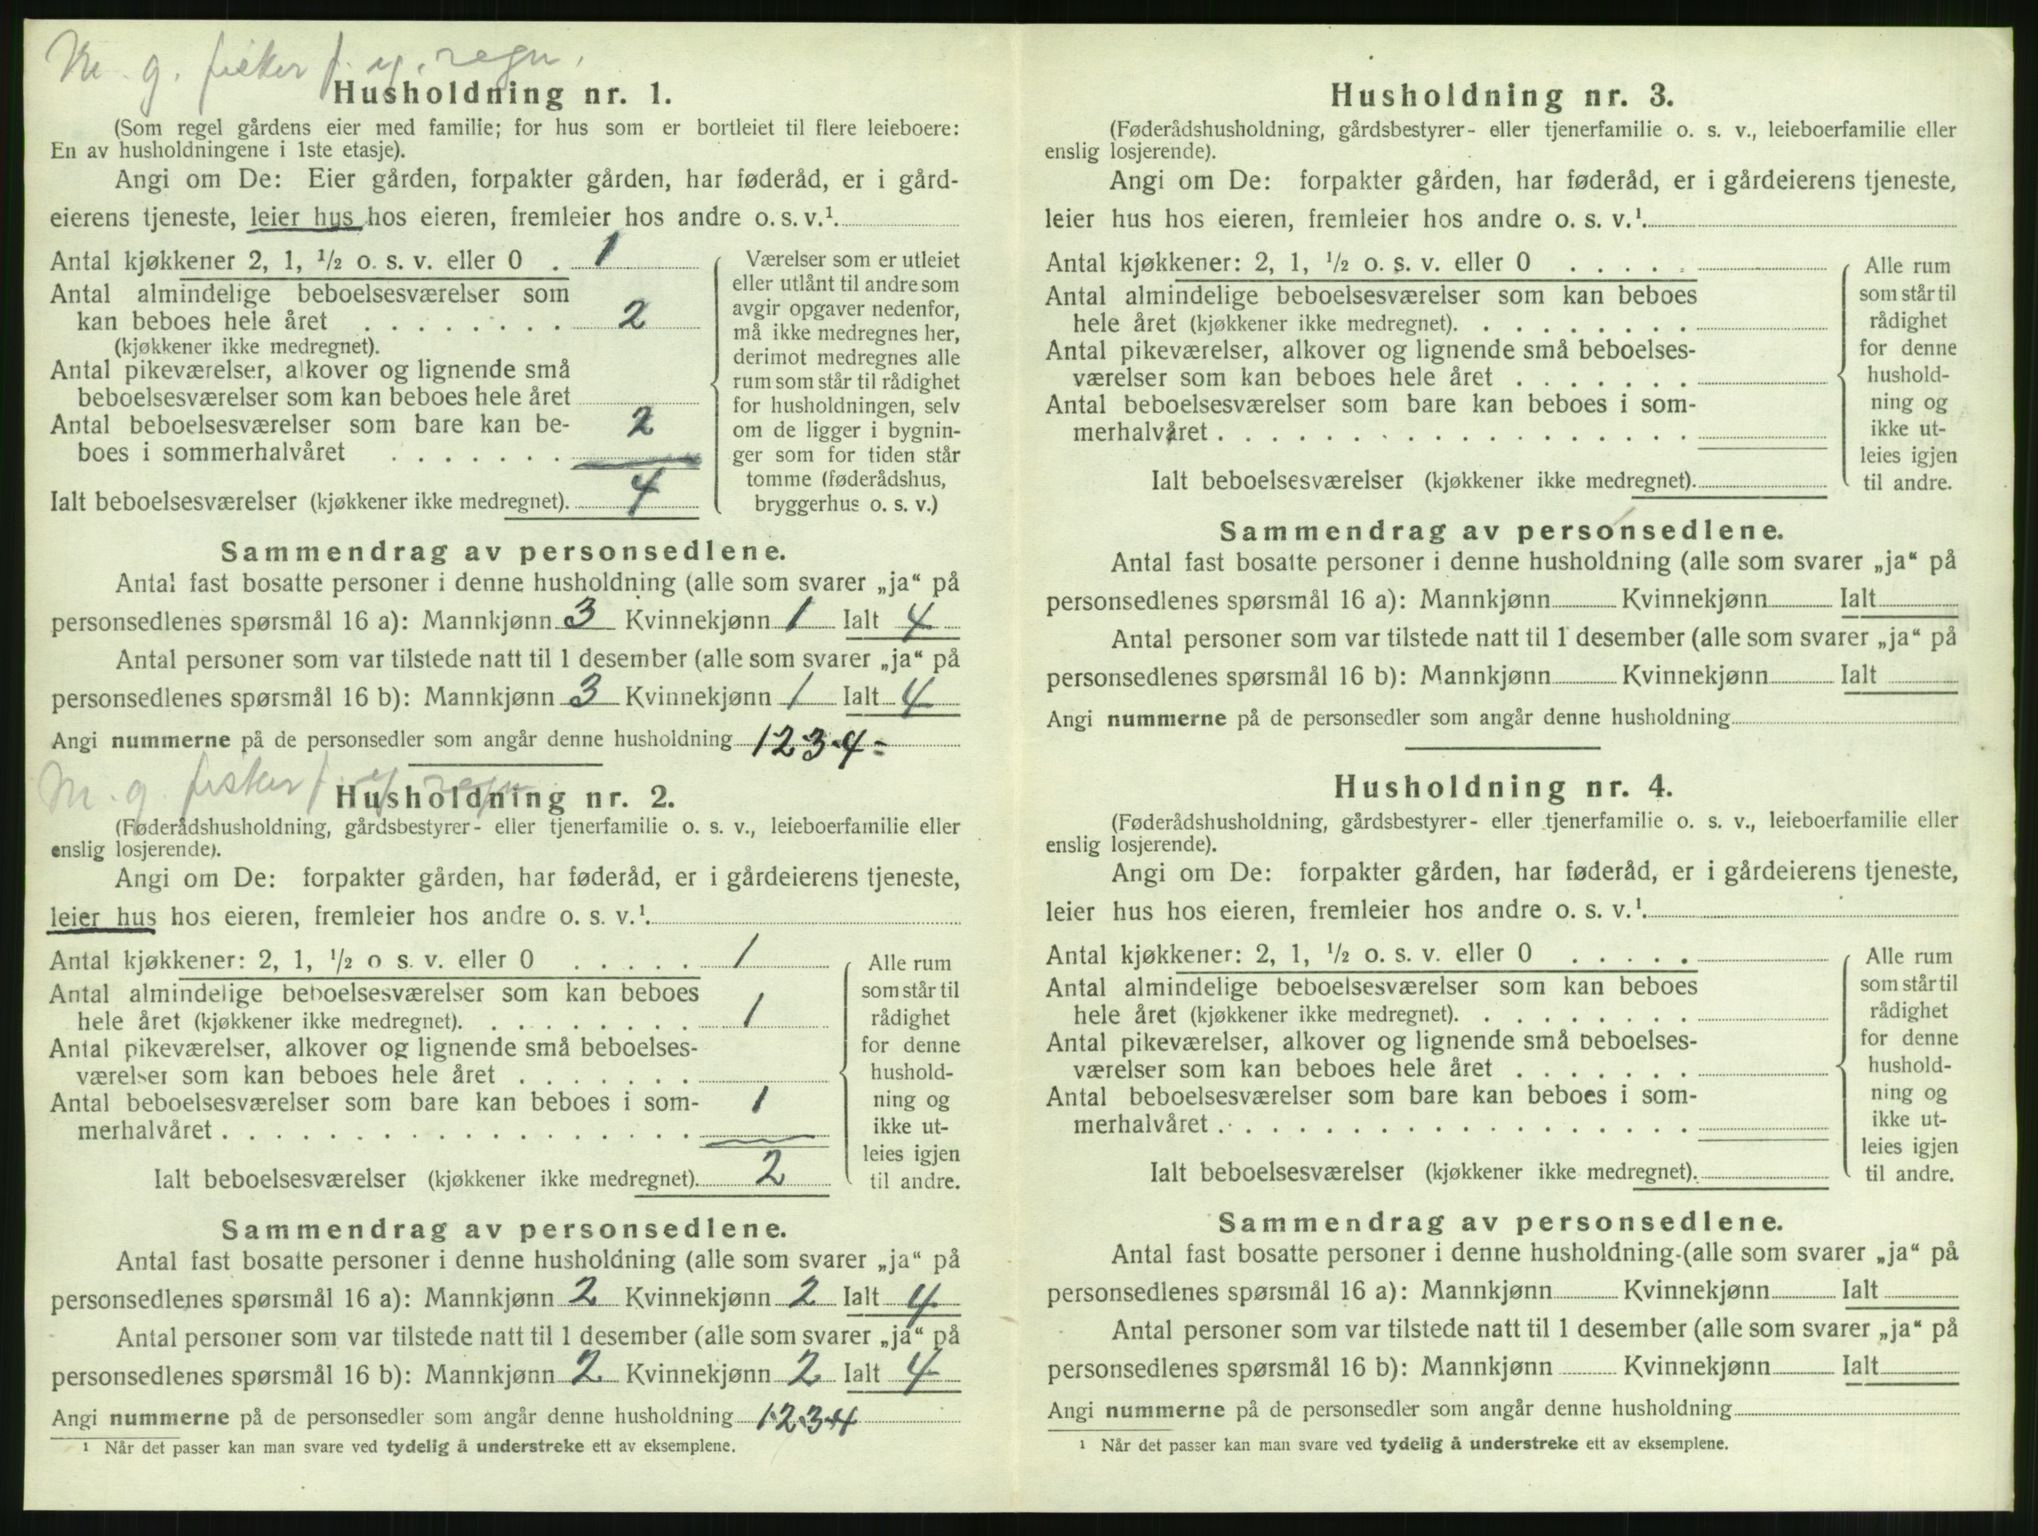 M. g. fisker f. y. regn.
Husholdning nr. 1.
(Som regel gårdens eier med familie; for hus som er bortleiet til flere leieboere:
En av husholdningene i 1ste etasje).
Angi om De: Eier gården, forpakter gården, har føderåd, er i gård-
eierens tjeneste, leier hus hos eieren, fremleier hos andre o. s. v.¹.
Antal kjøkkener 2, 1, ½ o. s. v. eller 0 . 1
Antal almindelige beboelsesværelser som
kan beboes hele året . . . . . . . . 2
(kjøkkener ikke medregnet).
Antal pikeværelser, alkover og lignende små
beboelsesværelser som kan beboes hele året
Antal beboelsesværelser som bare kan be-
boes i sommerhalvåret . . . . . . . 2
Ialt beboelsesværelser (kjøkkener ikke medregnet). 4
Værelser som er utleiet
eller utlånt til andre som
avgir opgaver nedenfor,
må ikke medregnes her,
derimot medregnes alle
rum som står til rådighet
for husholdningen, selv
om de ligger i bygnin-
ger som for tiden står
tomme (føderådshus,
bryggerhus o. s. v.)
Sammendrag av personsedlene.
Antal fast bosatte personer i denne husholdning (alle som svarer „ja“ på
personsedlenes spørsmål 16 a): Mannkjønn 3 Kvinnekjønn 1 Ialt 4
Antal personer som var tilstede natt til 1 desember (alle som svarer „ja“ på
personsedlenes spørsmål 16 b): Mannkjønn 3 Kvinnekjønn 1 Ialt 4
Angi nummerne på de personsedler som angår denne husholdning 1 2 3 4 =
M. g. fisker f. y. regn
Husholdning nr. 2.
(Føderådshusholdning, gårdsbestyrer- eller tjenerfamilie o. s. v., leieboerfamilie eller
enslig losjerende).
Angi om De: forpakter gården, har føderåd, er i gårdeierens tjeneste,
leier hus hos eieren, fremleier hos andre o. s. v.¹.
Antal kjøkkener: 2, 1, ½ o s. v. eller 0 . . . . . 1
Antal almindelige beboelsesværelser som kan beboes
hele året (kjøkkener ikke medregnet). . . . . . . . . 1
Antal pikeværelser, alkover og lignende små beboelses-
værelser som kan beboes hele året . . . . . . .
Antal beboelsesværelser som bare kan beboes i som- 1
merhalvåret . . . . . . . . . . . . . . . . . .
Ialt beboelsesværelser (kjøkkener ikke medregnet). 2
Alle rum
som står til
rådighet
for denne
hushold-
ning og
ikke ut-
leies igjen
til andre.
Sammendrag av personsedlene.
Antal fast bosatte personer i denne husholdning (alle som svarer „ja“ på
personsedlenes spørsmål 16 a): Mannkjønn 2 Kvinnekjønn 2 Ialt 4
Antal personer som var tilstede natt til 1 desember (alle som svarer „ja“ på
personsedlenes spørsmål 16 b): Mannkjønn 2 Kvinnekjønn 2 Ialt 4
Angi nummerne på de personsedler som angår denne husholdning 1.2.3.4
¹ Når det passer kan man svare ved tydelig å understreke ett av eksemplene.
Husholdning nr. 3.
(Føderådshusholdning, gårdsbestyrer- eller tjenerfamilie o. s. v., leieboerfamilie eller
enslig losjerende).
Angi om De: forpakter gården, har føderåd, er i gårdeierens tjeneste,
leier hus hos eieren, fremleier hos andre o. s. v.¹.
Antal kjøkkener: 2, 1, ½ o. s. v. eller 0 . . . . .
Antal almindelige beboelsesværelser som kan beboes
hele året (kjøkkener ikke medregnet). . . . . . . . .
Antal pikeværelser, alkover og lignende små beboelses-
værelser som kan beboes hele året . . . . . . .
Antal beboelsesværelser som bare kan beboes i som-
merhalvåret . . . . . . . . . . . . . . . . . .
Ialt beboelsesværelser (kjøkkener ikke medregnet).
Alle rum
som står til
rådighet
for denne
hushold-
ning og
ikke ut-
leies igjen
til andre.
Sammendrag av personsedlene.
Antal fast bosatte personer i denne husholdning (alle som svarer „ja“ på
personsedlenes spørsmål 16 a): Mannkjønn Kvinnekjønn Ialt
Antal personer som var tilstede natt til 1 desember (alle som svarer „ja“ på
personsedlenes spørsmål 16 b): Mannkjønn Kvinnekjønn Ialt
Angi nummerne på de personsedler som angår denne husholdning
Husholdning nr. 4.
(Føderådshusholdning, gårdsbestyrer- eller tjenerfamilie o. s. v., leieboerfamilie eller
enslig losjerende).
Angi om De: forpakter gården, har føderåd, er i gårdeierens tjeneste,
leier hus hos eieren, fremleier hos andre o. s. v.¹.
Antal kjøkkener: 2, 1, ½ o. s. v. eller 0 . . . . .
Antal almindelige beboelsesværelser som kan beboes
hele året (kjøkkener ikke medregnet). . . . . . . . .
Antal pikeværelser, alkover og lignende små beboelses-
værelser som kan beboes hele året . . . . . . .
Antal beboelsesværelser som bare kan beboes i som-
merhalvåret . . . . . . . . . . . . . . . . . .
Ialt beboelsesværelser (kjøkkener ikke medregnet).
Alle rum
som står til
rådighet
for denne
hushold-
ning og
ikke ut-
leies igjen
til andre.
Sammendrag av personsedlene.
Antal fast bosatte personer i denne husholdning (alle som svarer „ja“ på
personsedlenes spørsmål 16 a): Mannkjønn Kvinnekjønn Ialt
Antal personer som var tilstede natt til 1 desember (alle som svarer „ja“ på
personsedlenes spørsmål 16 b): Mannkjønn Kvinnekjønn Ialt
Angi nummerne på de personsedler som angår denne husholdning
¹ Når det passer kan man svare ved tydelig å understreke ett av eksemplene.